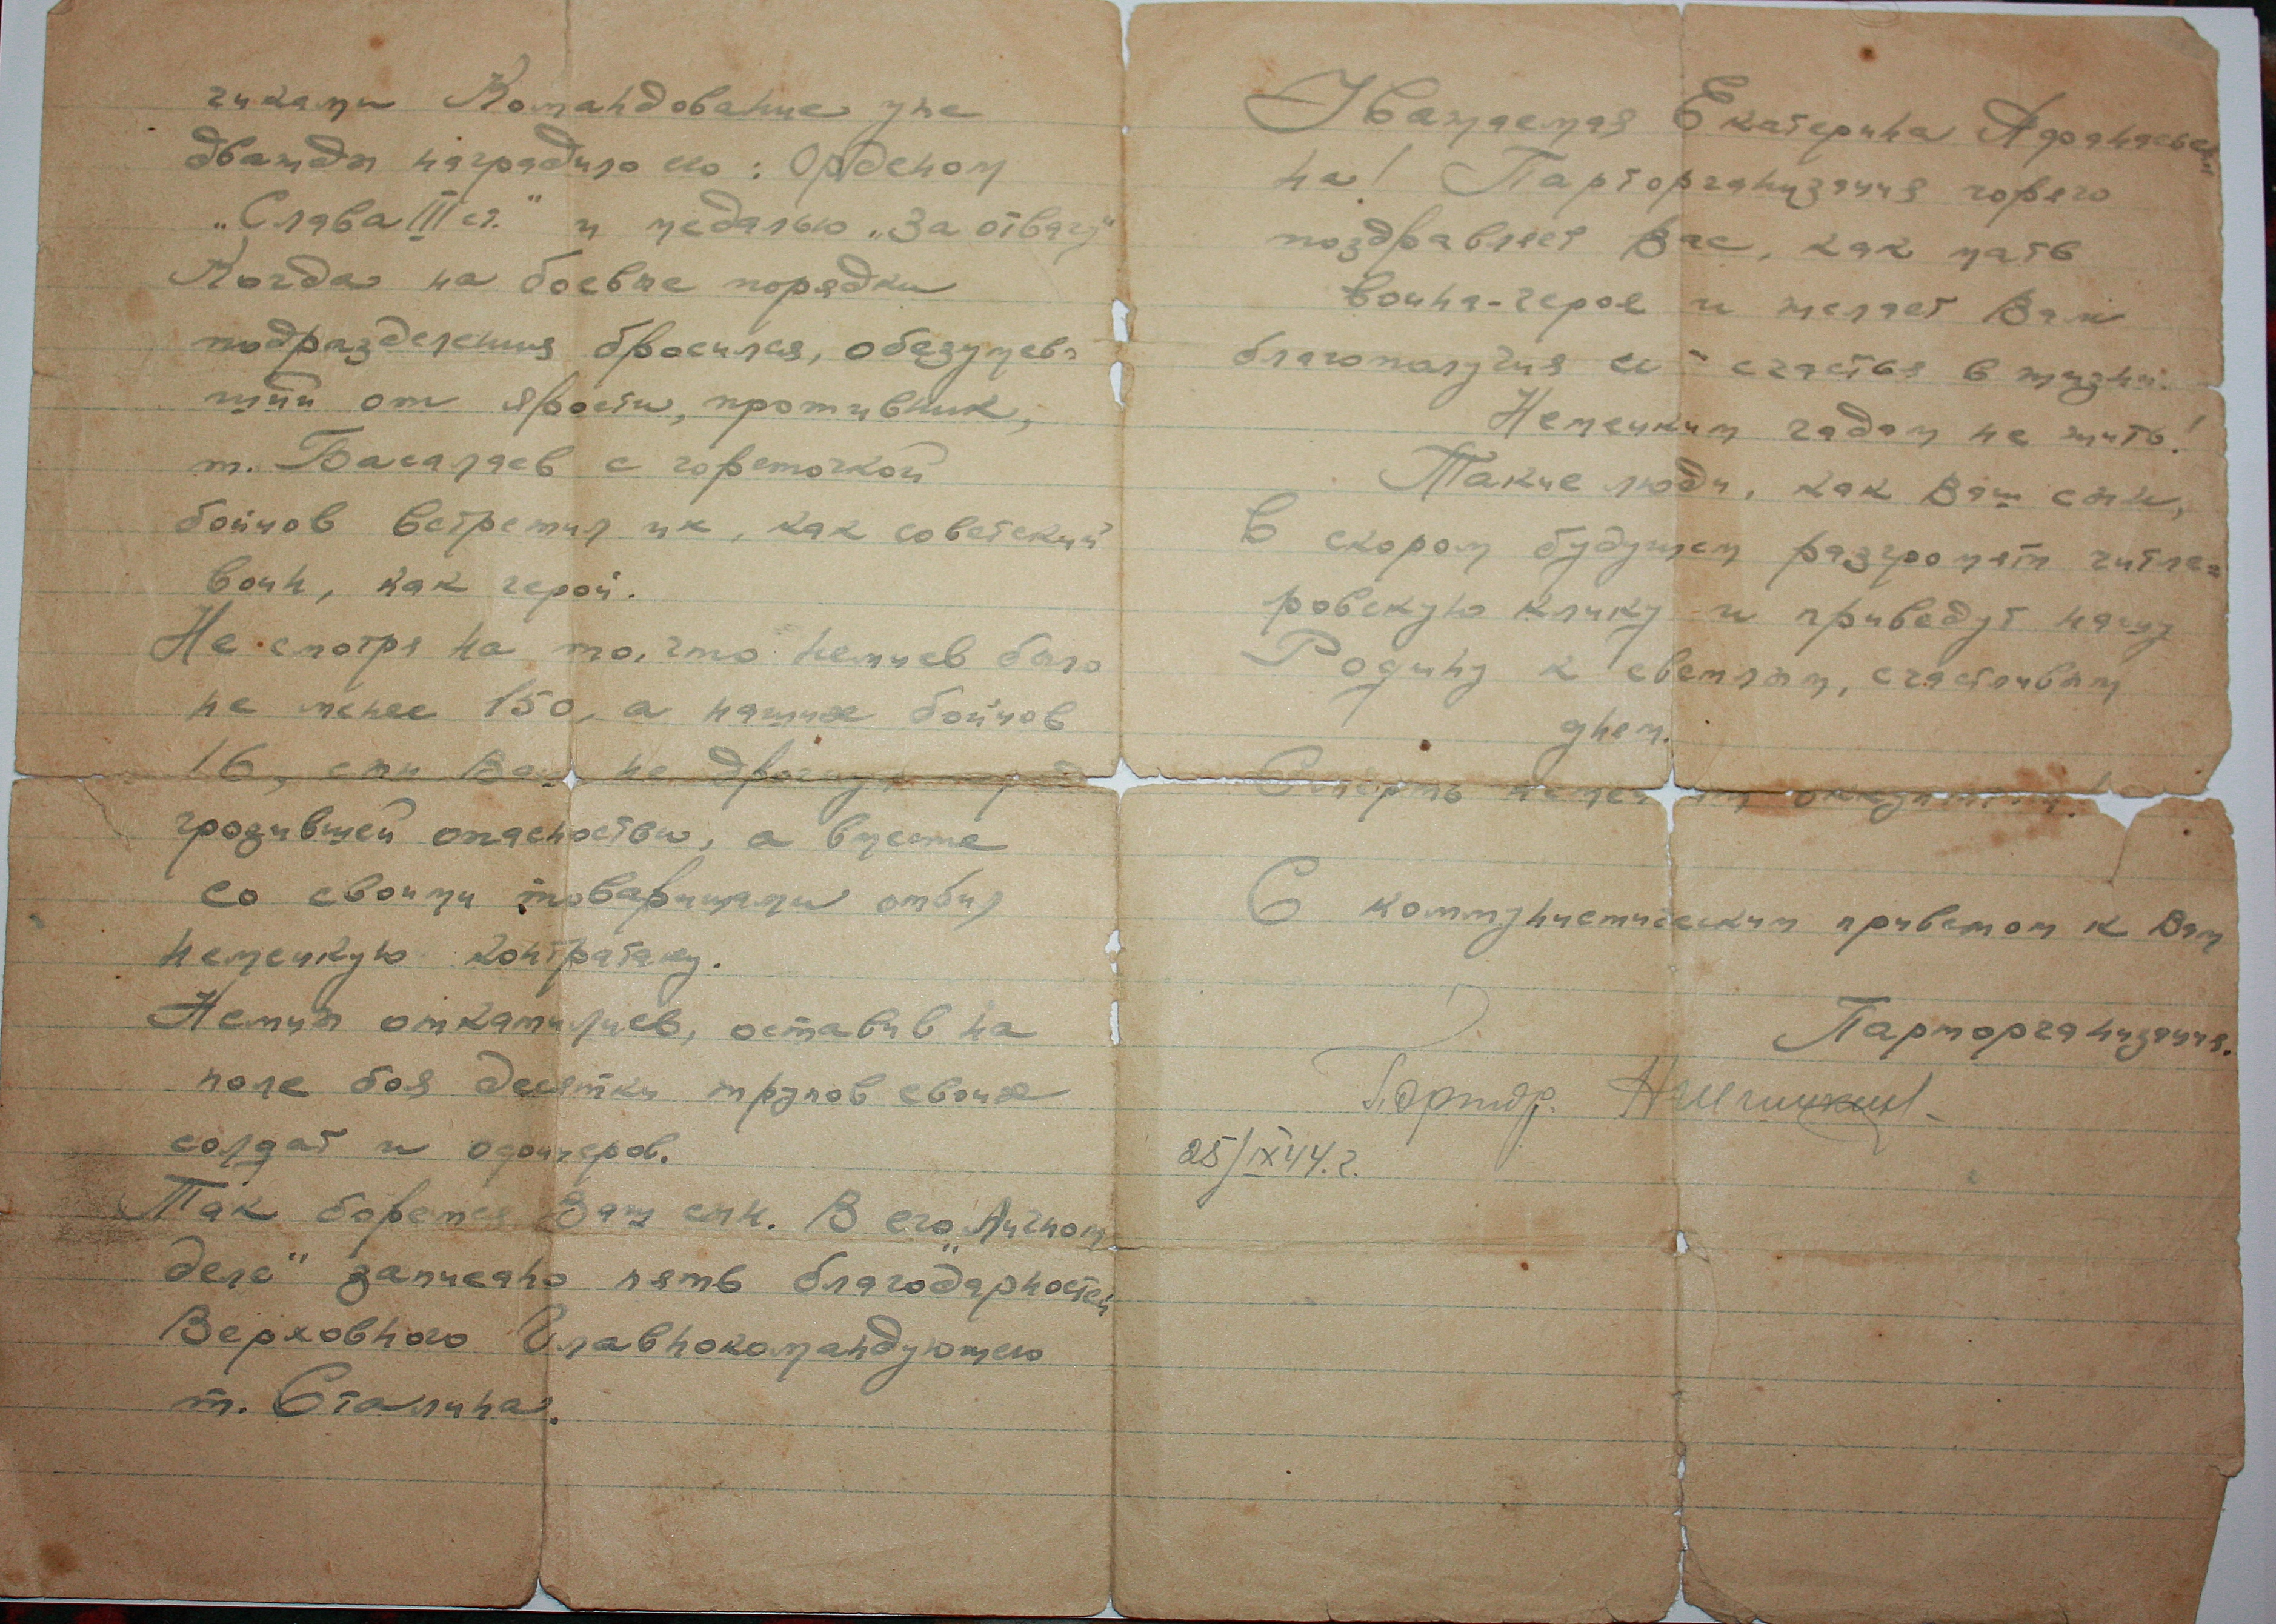 чиками Командование уже
дважды наградило его: Орденом
„Слава III ст." и медалью „За отвагу"
Когда на боевые порядки
подразделения бросился, обезумев-
ший от ярости, противник,
т. Басалаев с горсточкой
бойцов встретил их, как советский
воин, как герой.
Не смотря на то, что немцев было
не менее 150, а наших бойцов
16, сын Ваш не дрогнул перед
грозившей опасностью, а вместе
со своими товарищами отбил
немецкую контратаку.
Немцы откатились, оставив на
поле боя десятки трупов своих
солдат и офицеров.
Так борется Ваш сын. В его „Личном
деле" записано пять благодарностей
Верховного Главнокомандующего
т. Сталина.
Уважаемая Екатерина Афанасьев-
на! Парторганизация горячо
поздравляет Вас, как мать
воина-героя и желает Вам
благополучия и счастья в жизни.
Немецким гадам не жить!
Такие люди, как Ваш сын,
в скором будущем разгромят гитле-
ровскую клику и приведут нашу
Родину к светлым, счастливым
дням.
Смерть немецким оккупантам!
С коммунистическим приветом к Вам
Парторганизация.
Парторг.
25/IX 44. г.